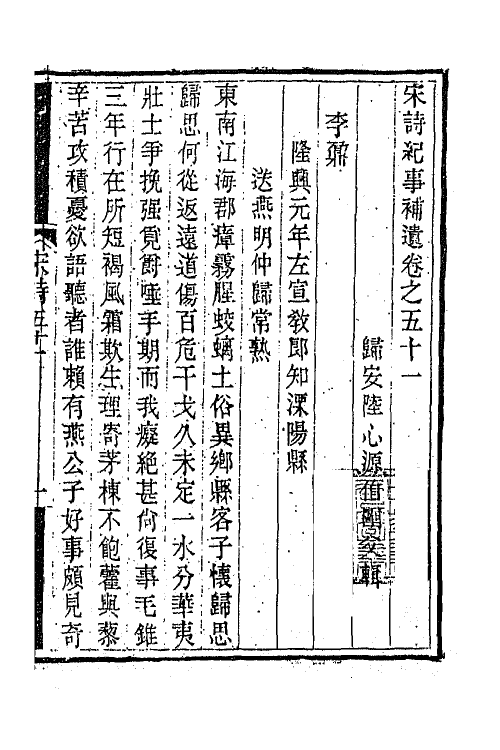 宋詩紀事補遺卷之五十一
歸安陸心源 輯
李鼐
隆興元年左宣敎郎知溧陽縣
送燕明仲歸常熟
東南江海郡瘴霧腥蛟螭土俗異鄉縣客子懷歸思
歸思何從返遠道傷百危干戈久未定一水分華夷
壯士爭挽强覓爵唾手期而我癡絕甚尙復事毛錐
三年行在所短褐風霜欺生理寄茅棟不飽藿與藜
辛苦攻積憂欲語聽者誰賴有燕公子好事頗見奇